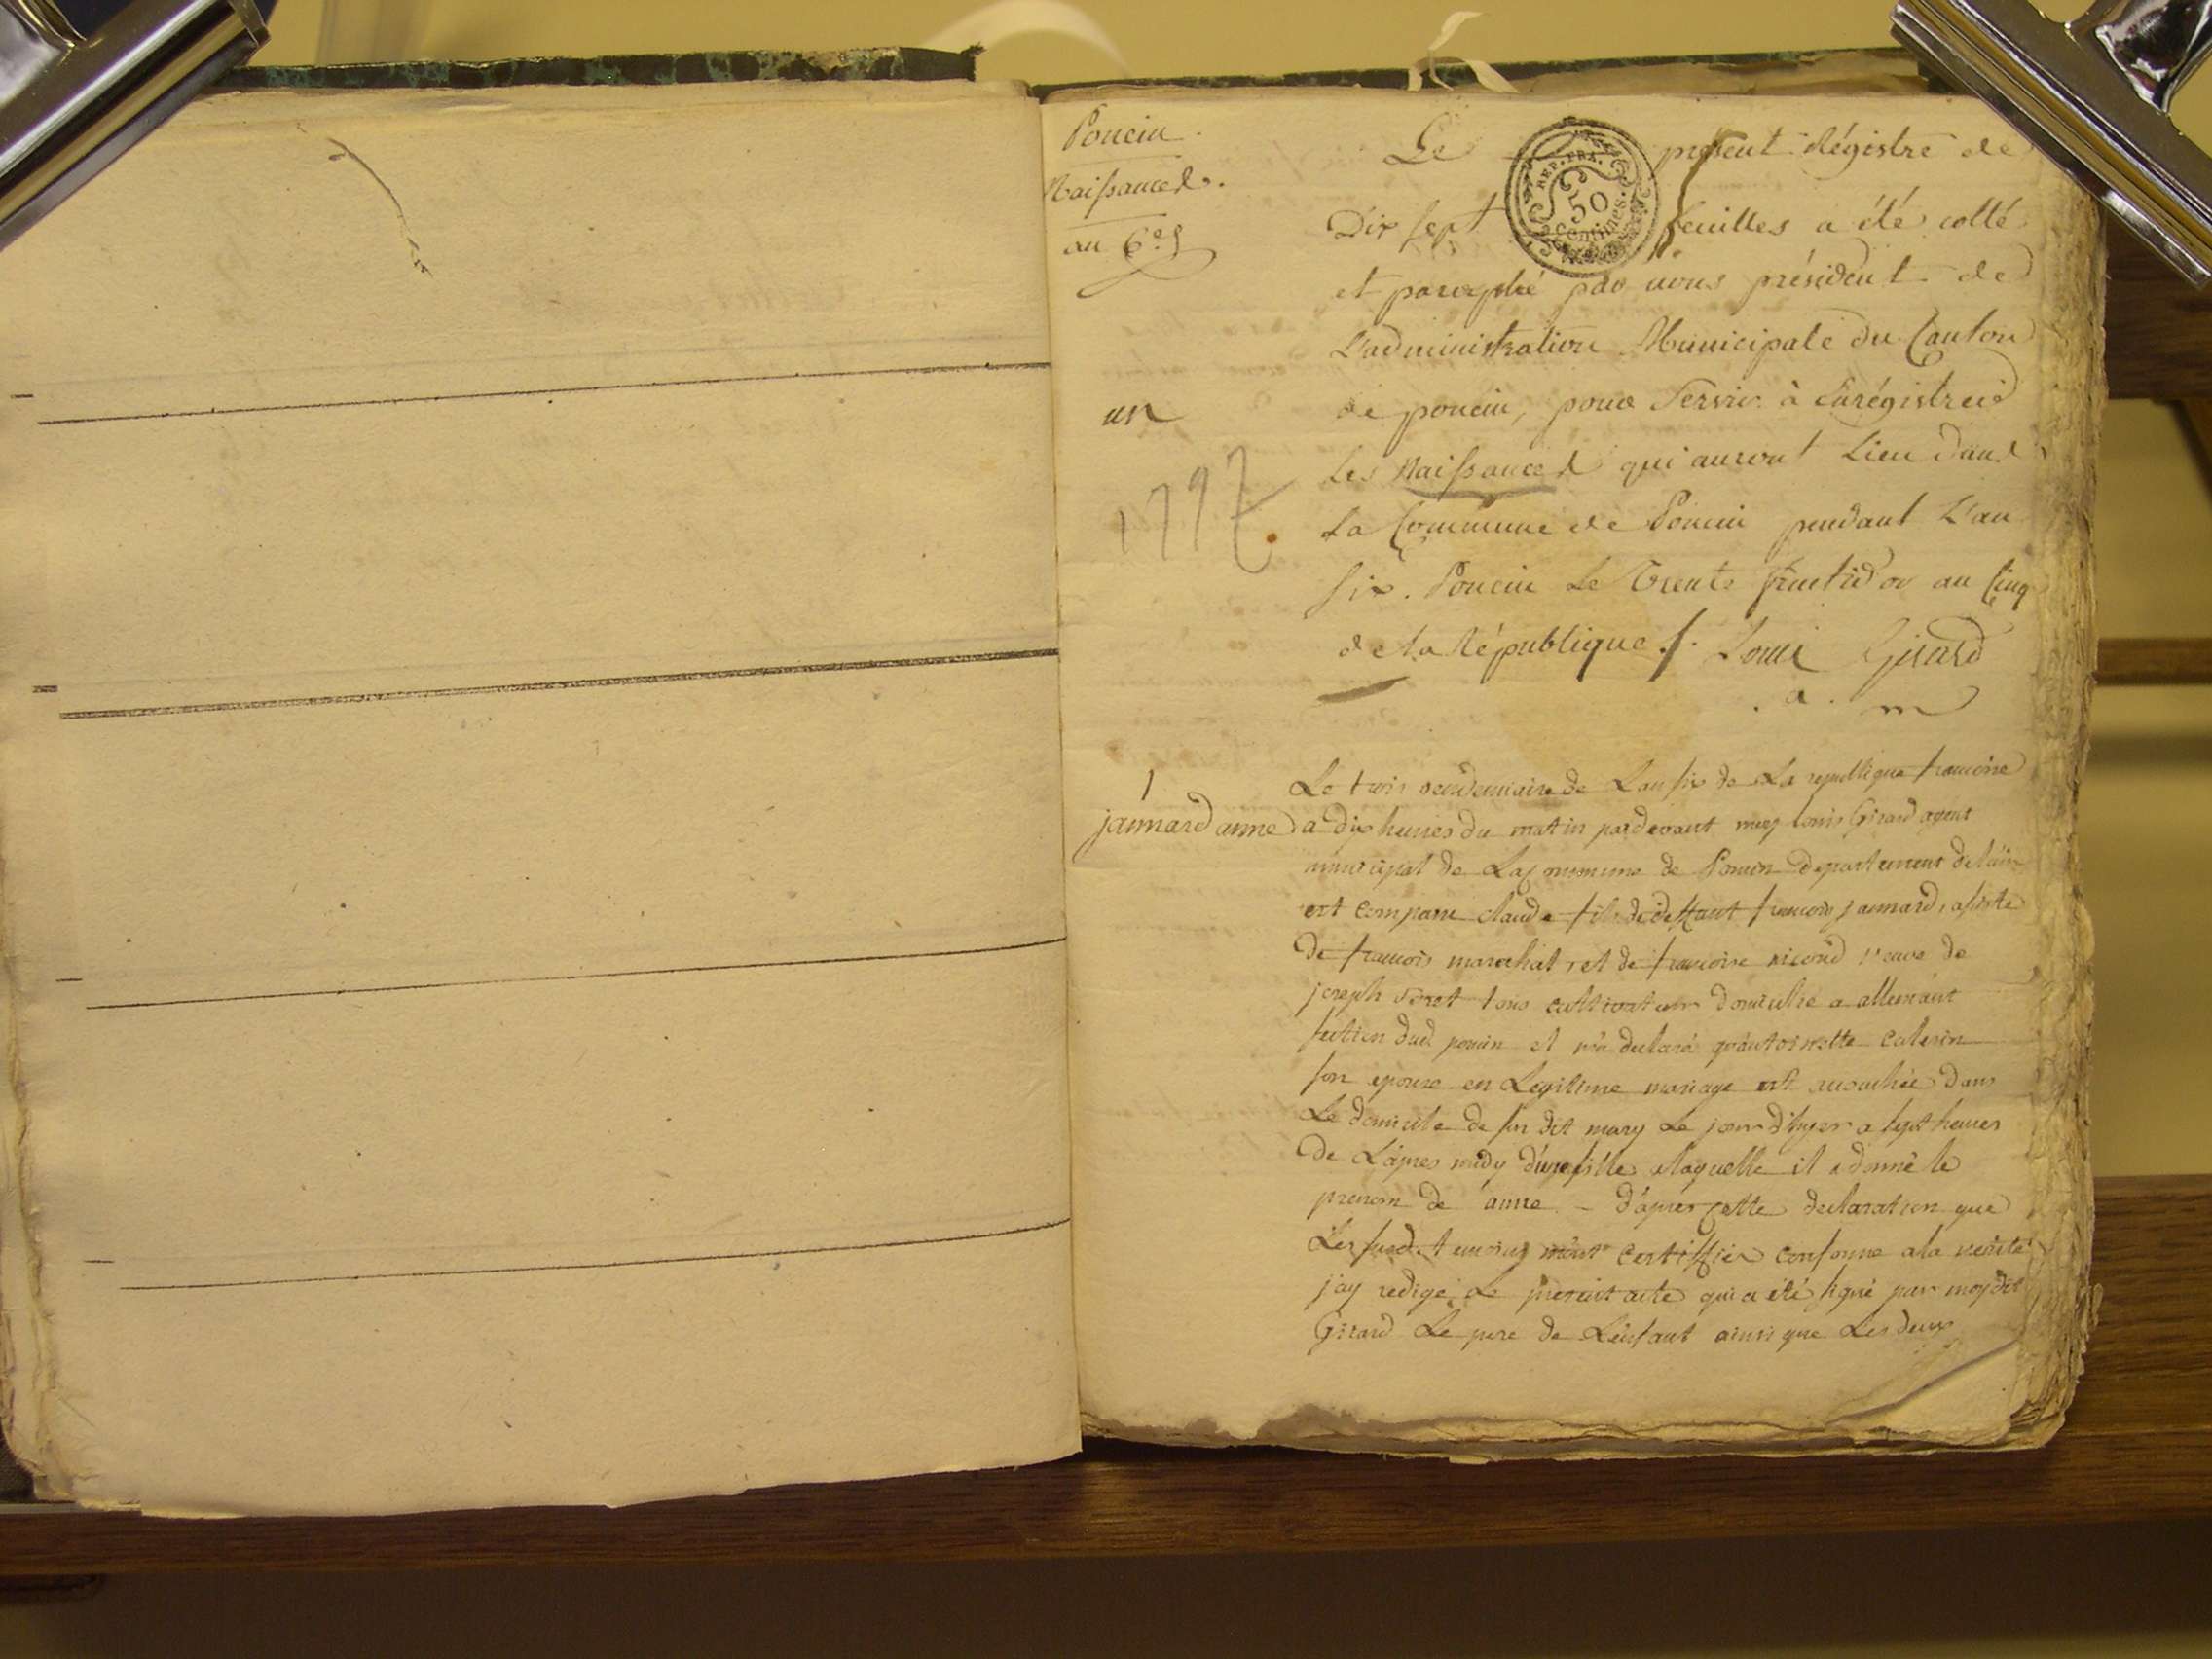 Poncin
Naissances.
an 6e
un
1797
REP. FRA.
50
centimes.
Le present Régistre de
Dix sept feuilles a été cotté
et paraphé par nous président de
L'administration Municipale du Canton
de poncin, pour Servir à Enrégistrer
Les Naissances qui auront Lieu dans
La Commune de Poncin pendant L'an
six. Poncin Le Trente fructidor an Cinq
de la République. Louis Girard
a. m
1
jannard anne
Le trois vendemiaire de Lan six de La republique francoise
a dix heures du matin pardevant moy louis Girard agent
municipal de La Commune de Poncin departement de lain
est comparu claude fils de deffunt francois jannard, assisté
de francois marechal, et de francoise veuve de
joseph tous cultivateurs domicilié a allemant
section dud poncin et m'a declaré qu'antoinette
son epouse en Legitime mariage est accouchée dans
Le domicile de son dit mary Le jour d'hyer a sept heures
de L'apres midy d'une fille a laquelle il a donné le
prenom de anne - d'apres cette declaration que
Les susd. temoins m'ont certiffiés conforme a la verité
j'ay redigé Le present acte qui a été signé par moy dit
Girard Le pere de L'enfant ainsi que Les deux